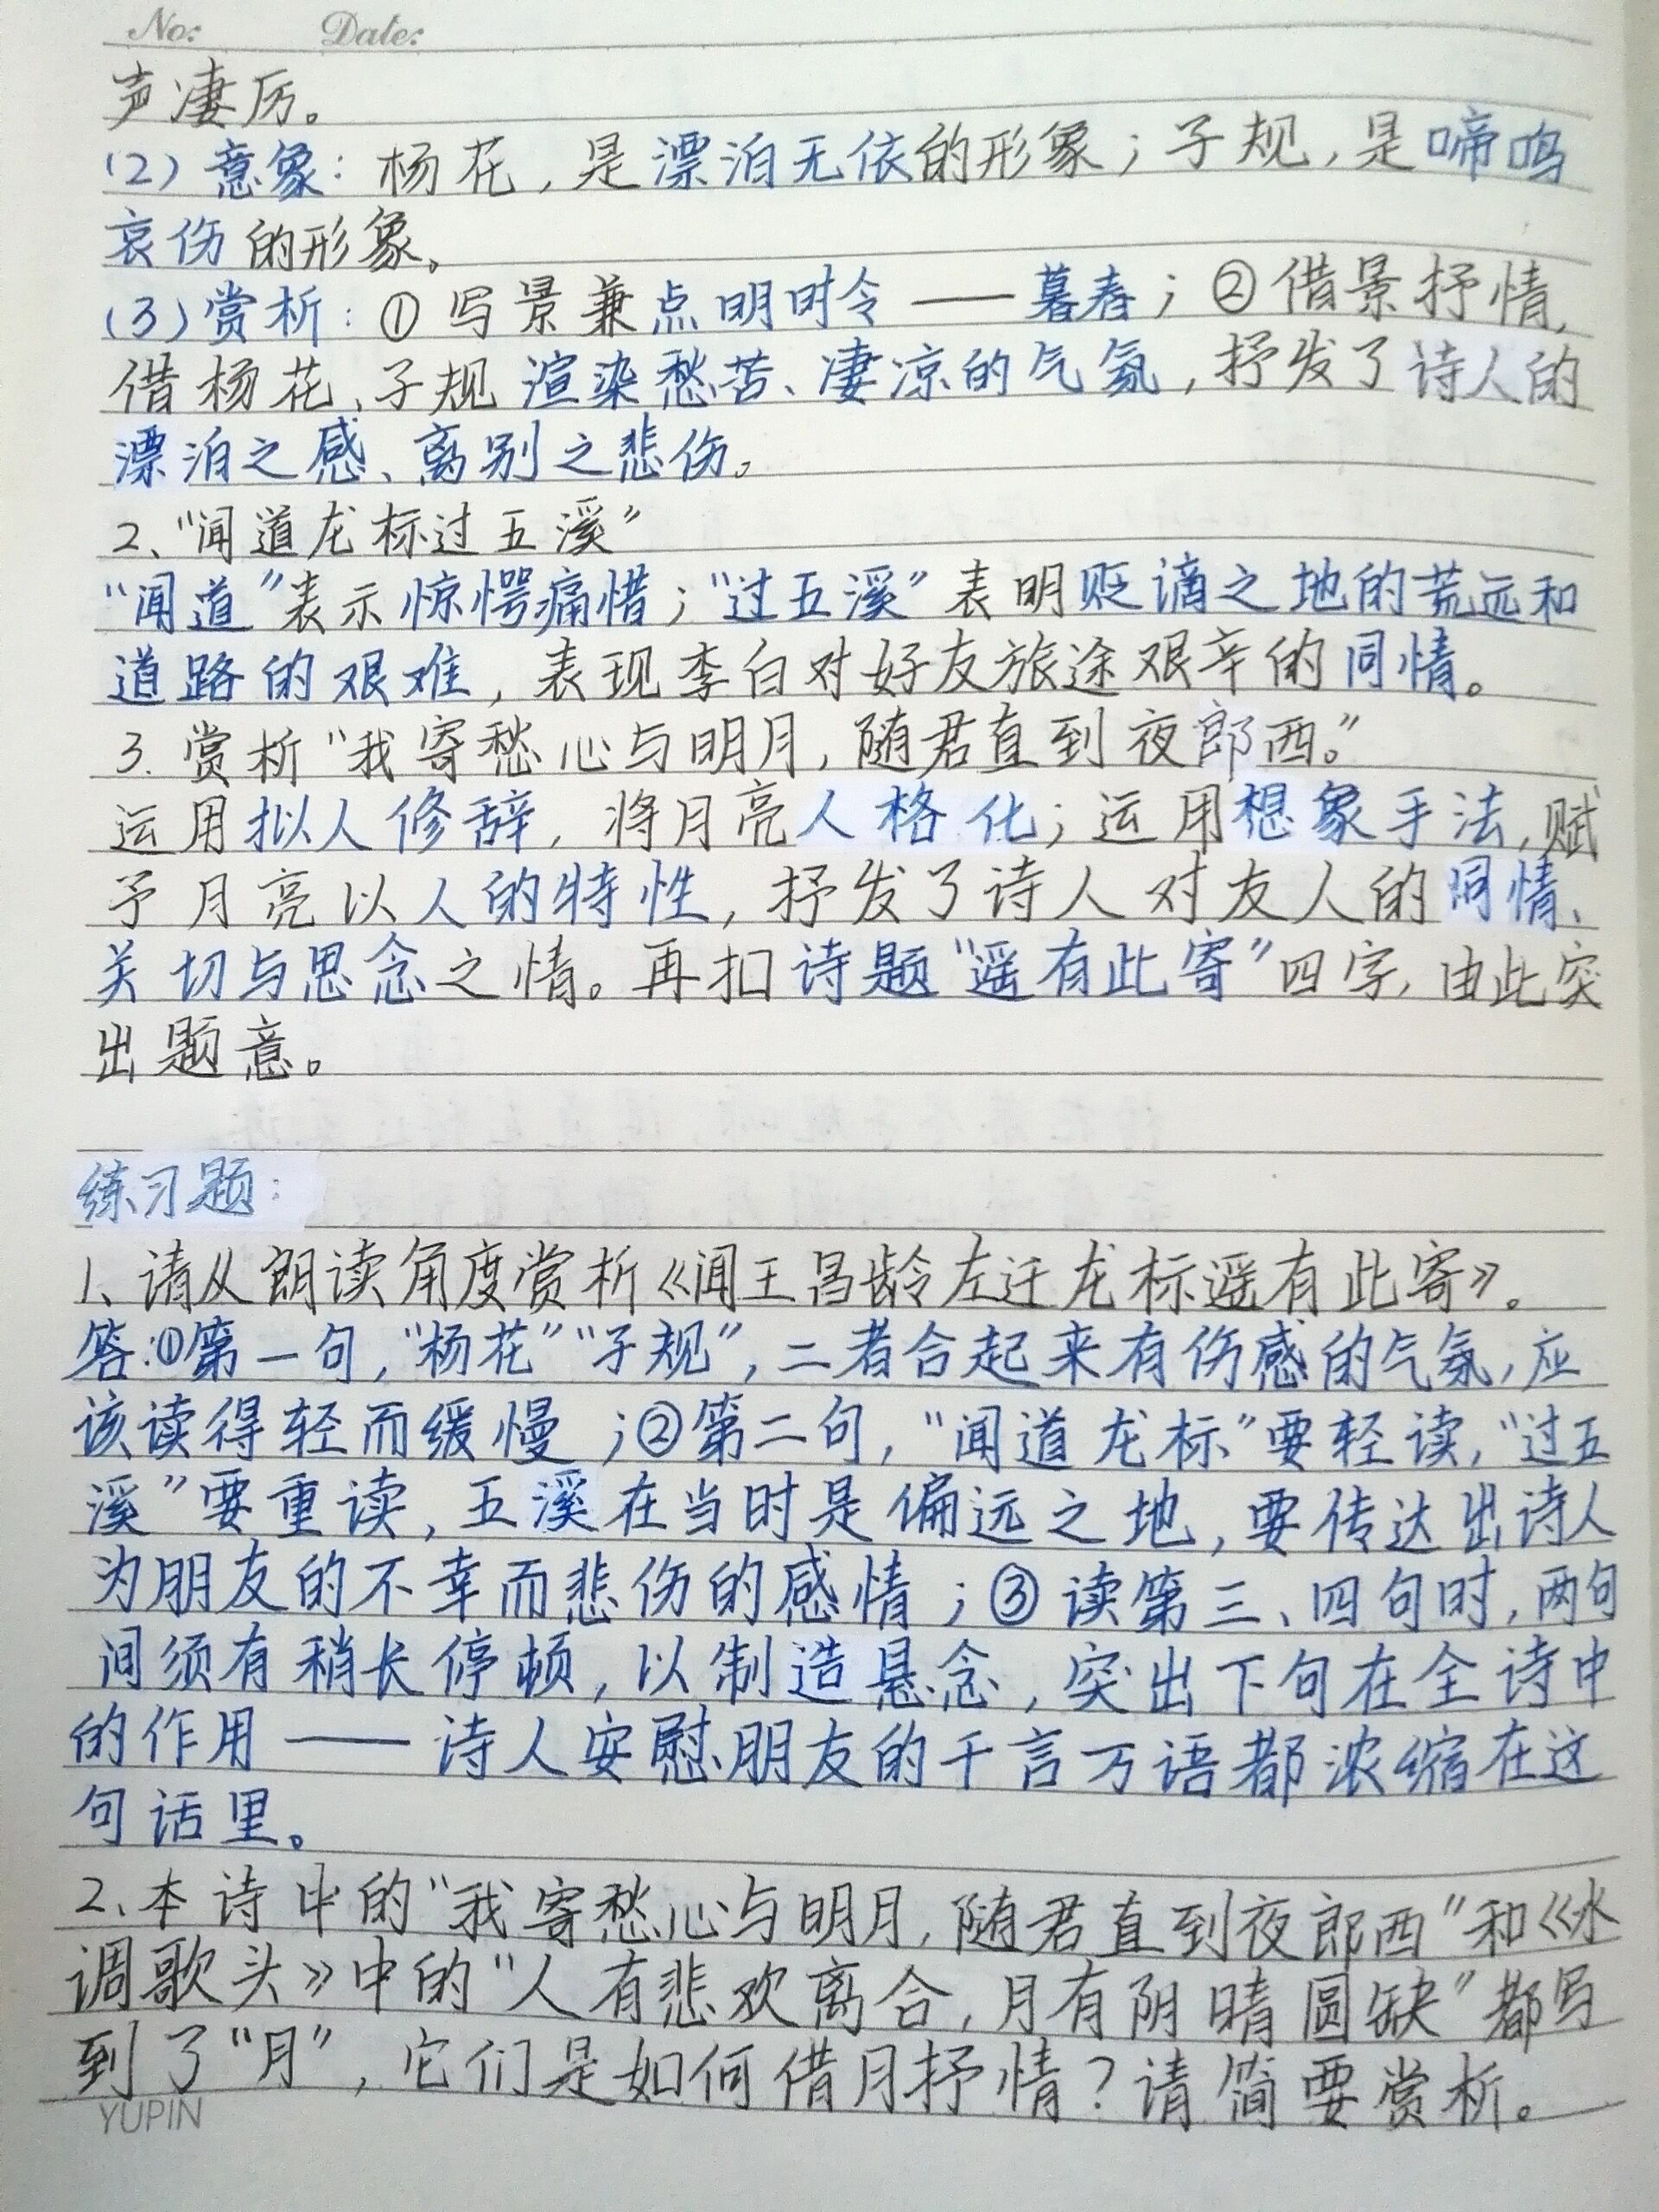 No:  Date:
声凄厉。
(2) 意象：杨花，是漂泊无依的形象；子规，是啼鸣
哀伤的形象。
(3) 赏析：①写景兼点明时令——暮春；②借景抒情，
借杨花、子规渲染愁苦、凄凉的气氛，抒发了诗人的
漂泊之感、离别之悲伤。
2、“闻道龙标过五溪”
“闻道”表示惊愕痛惜；“过五溪”表明贬谪之地的荒远和
道路的艰难，表现李白对好友旅途艰辛的同情。
3. 赏析“我寄愁心与明月，随君直到夜郎西。”
运用拟人修辞，将月亮人格化；运用想象手法，赋
予月亮以人的特性，抒发了诗人对友人的同情、
关切与思念之情。再扣诗题“遥有此寄”四字，由此突
出题意。
练习题：
1、请从朗读角度赏析《闻王昌龄左迁龙标遥有此寄》。
答：①第一句，“杨花”“子规”，二者合起来有伤感的气氛，应
该读得轻而缓慢；②第二句，“闻道龙标”要轻读，“过五
溪”要重读，五溪在当时是偏远之地，要传达出诗人
为朋友的不幸而悲伤的感情；③读第三、四句时，两句
间须有稍长停顿，以制造悬念，突出下句在全诗中
的作用——诗人安慰朋友的千言万语都浓缩在这
句话里。
2、本诗中的“我寄愁心与明月，随君直到夜郎西”和《水
调歌头》中的“人有悲欢离合，月有阴晴圆缺”都写
到了“月”，它们是如何借月抒情？请简要赏析。
YUPIN